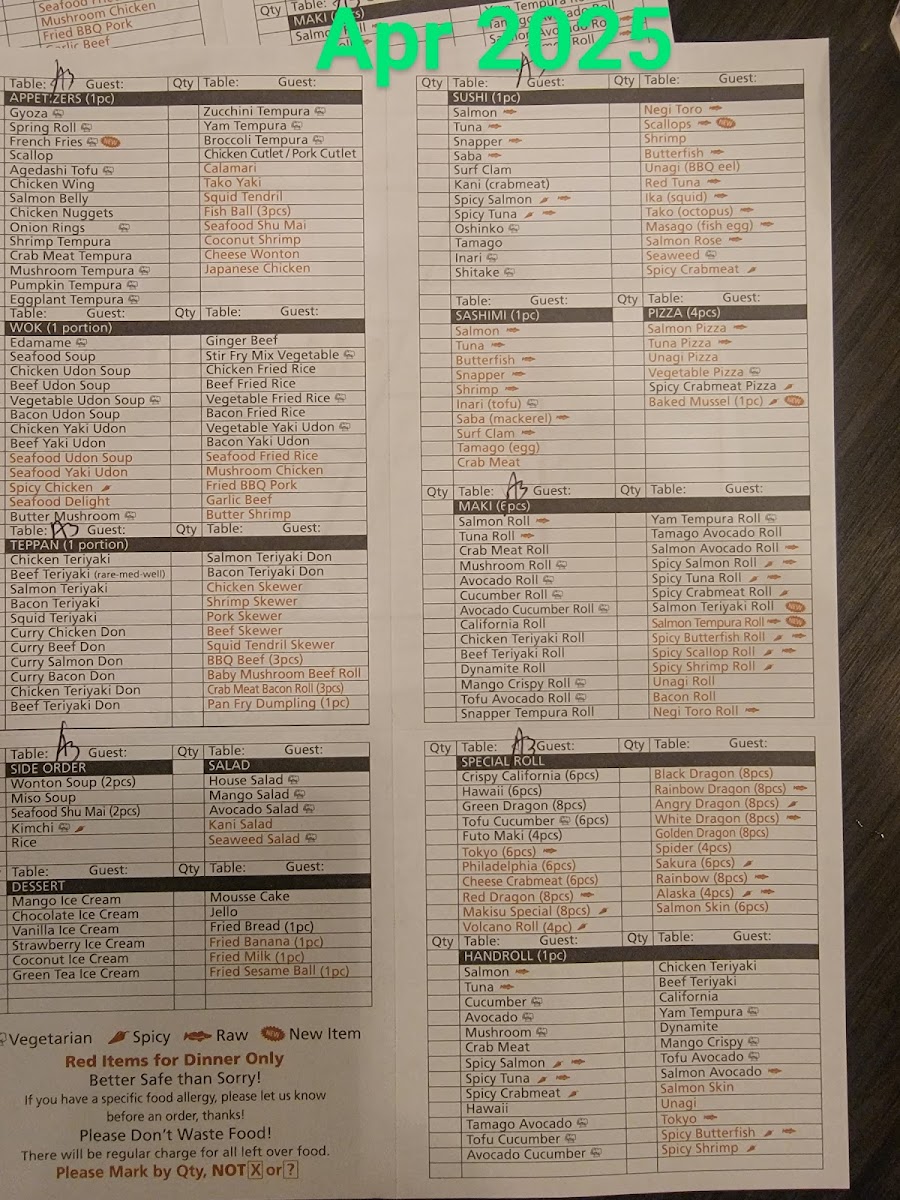 Seafood
Mushroom Chicken
Fried BBQ Pork
Garlic Beef
Qty Table:
MAKI
Salmon Roll
Yam Tempura Roll
Tamago Avocado Roll
Salmon Avocado Roll
Apr 2025
Table: A3 Guest: Qty Table: Guest:
APPETIZERS (1pc)
Gyoza Zucchini Tempura
Spring Roll Yam Tempura
French Fries NEW Broccoli Tempura
Scallop Chicken Cutlet / Pork Cutlet
Agedashi Tofu Calamari
Chicken Wing Tako Yaki
Salmon Belly Squid Tendril
Chicken Nuggets Fish Ball (3pcs)
Onion Rings Seafood Shu Mai
Shrimp Tempura Coconut Shrimp
Crab Meat Tempura Cheese Wonton
Mushroom Tempura Japanese Chicken
Pumpkin Tempura
Eggplant Tempura
Table: Guest: Qty Table: Guest:
WOK (1 portion)
Edamame Ginger Beef
Seafood Soup Stir Fry Mix Vegetable
Chicken Udon Soup Chicken Fried Rice
Beef Udon Soup Beef Fried Rice
Vegetable Udon Soup Vegetable Fried Rice
Bacon Udon Soup Bacon Fried Rice
Chicken Yaki Udon Vegetable Yaki Udon
Beef Yaki Udon Bacon Yaki Udon
Seafood Udon Soup Seafood Fried Rice
Seafood Yaki Udon Mushroom Chicken
Spicy Chicken Fried BBQ Pork
Seafood Delight Garlic Beef
Butter Mushroom Butter Shrimp
Table: A3 Guest: Qty Table: Guest:
TEPPAN (1 portion)
Chicken Teriyaki Salmon Teriyaki Don
Beef Teriyaki (rare-med-well) Bacon Teriyaki Don
Salmon Teriyaki Chicken Skewer
Bacon Teriyaki Shrimp Skewer
Squid Teriyaki Pork Skewer
Curry Chicken Don Beef Skewer
Curry Beef Don Squid Tendril Skewer
Curry Salmon Don BBQ Beef (3pcs)
Curry Bacon Don Baby Mushroom Beef Roll
Chicken Teriyaki Don Crab Meat Bacon Roll (3pcs)
Beef Teriyaki Don Pan Fry Dumpling (1pc)
Table: A3 Guest: Qty Table: Guest:
SIDE ORDER SALAD
Wonton Soup (2pcs) House Salad
Miso Soup Mango Salad
Seafood Shu Mai (2pcs) Avocado Salad
Kimchi Kani Salad
Rice Seaweed Salad
Table: Guest: Qty Table: Guest:
DESSERT
Mango Ice Cream Mousse Cake
Chocolate Ice Cream Jello
Vanilla Ice Cream Fried Bread (1pc)
Strawberry Ice Cream Fried Banana (1pc)
Coconut Ice Cream Fried Milk (1pc)
Green Tea Ice Cream Fried Sesame Ball (1pc)
Vegetarian Spicy Raw NEW New Item
Red Items for Dinner Only
Better Safe than Sorry!
If you have a specific food allergy, please let us know
before an order, thanks!
Please Don't Waste Food!
There will be regular charge for all left over food.
Please Mark by Qty, NOT X or ?
Qty Table: Guest: Qty Table: Guest:
SUSHI (1pc)
Salmon Negi Toro
Tuna Scallops NEW
Snapper Shrimp
Saba Butterfish
Surf Clam Unagi (BBQ eel)
Kani (crabmeat) Red Tuna
Spicy Salmon Ika (squid)
Spicy Tuna Tako (octopus)
Oshinko Masago (fish egg)
Tamago Salmon Rose
Inari Seaweed
Shitake Spicy Crabmeat
Table: Guest: Qty Table: Guest:
SASHIMI (1pc) PIZZA (4pcs)
Salmon Salmon Pizza
Tuna Tuna Pizza
Butterfish Unagi Pizza
Snapper Vegetable Pizza
Shrimp Spicy Crabmeat Pizza
Inari (tofu) Baked Mussel (1pc) NEW
Saba (mackerel)
Surf Clam
Tamago (egg)
Crab Meat
Qty Table: A3 Guest: Qty Table: Guest:
MAKI (6pcs)
Salmon Roll Yam Tempura Roll
Tuna Roll Tamago Avocado Roll
Crab Meat Roll Salmon Avocado Roll
Mushroom Roll Spicy Salmon Roll
Avocado Roll Spicy Tuna Roll
Cucumber Roll Spicy Crabmeat Roll
Avocado Cucumber Roll Salmon Teriyaki Roll NEW
California Roll Salmon Tempura Roll NEW
Chicken Teriyaki Roll Spicy Butterfish Roll
Beef Teriyaki Roll Spicy Scallop Roll
Dynamite Roll Spicy Shrimp Roll
Mango Crispy Roll Unagi Roll
Tofu Avocado Roll Bacon Roll
Snapper Tempura Roll Negi Toro Roll
Qty Table: A3 Guest: Qty Table: Guest:
SPECIAL ROLL
Crispy California (6pcs) Black Dragon (8pcs)
Hawaii (6pcs) Rainbow Dragon (8pcs)
Green Dragon (8pcs) Angry Dragon (8pcs)
Tofu Cucumber (6pcs) White Dragon (8pcs)
Futo Maki (4pcs) Golden Dragon (8pcs)
Tokyo (6pcs) Spider (4pcs)
Philadelphia (6pcs) Sakura (6pcs)
Cheese Crabmeat (6pcs) Rainbow (8pcs)
Red Dragon (8pcs) Alaska (4pcs)
Makisu Special (8pcs) Salmon Skin (6pcs)
Volcano Roll (4pc)
Qty Table: Guest: Qty Table: Guest:
HANDROLL (1pc)
Salmon Chicken Teriyaki
Tuna Beef Teriyaki
Cucumber California
Avocado Yam Tempura
Mushroom Dynamite
Crab Meat Mango Crispy
Spicy Salmon Tofu Avocado
Spicy Tuna Salmon Avocado
Spicy Crabmeat Salmon Skin
Hawaii Unagi
Tamago Avocado Tokyo
Tofu Cucumber Spicy Butterfish
Avocado Cucumber Spicy Shrimp